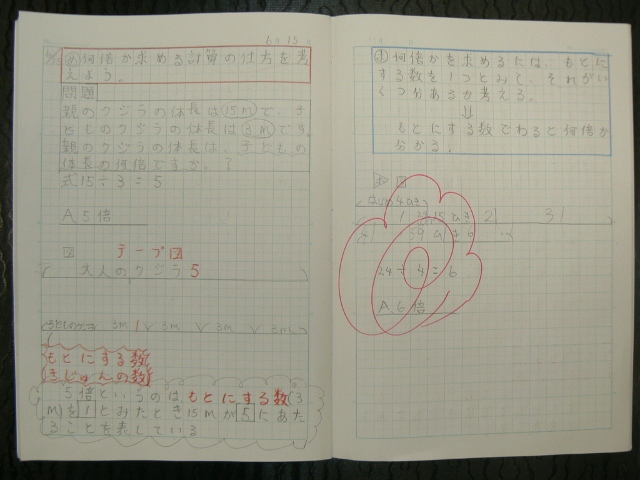 6 15
め何倍か求める計算の仕方を考
えよう。
問題
親のクジラの体長は15mで、さ
どものクジラの体長は3mです。
親のクジラの体長は、子どもの
体長の何倍ですか。?
式15÷3=5
A.5倍
テープ図
大人のクジラ5
3m 1 3m 3m 3m
もとにする数
きじゅんの数
5倍というのはもとにする数(3
m)を1とみたとき15mが5にあた
ることを表している
ま何倍かを求めるには、もとに
する数を1つとみて、それがい
くつ分あるか考える。
⇓
もとにする数でわると何倍か
分かる。
24÷4=6
A.6倍